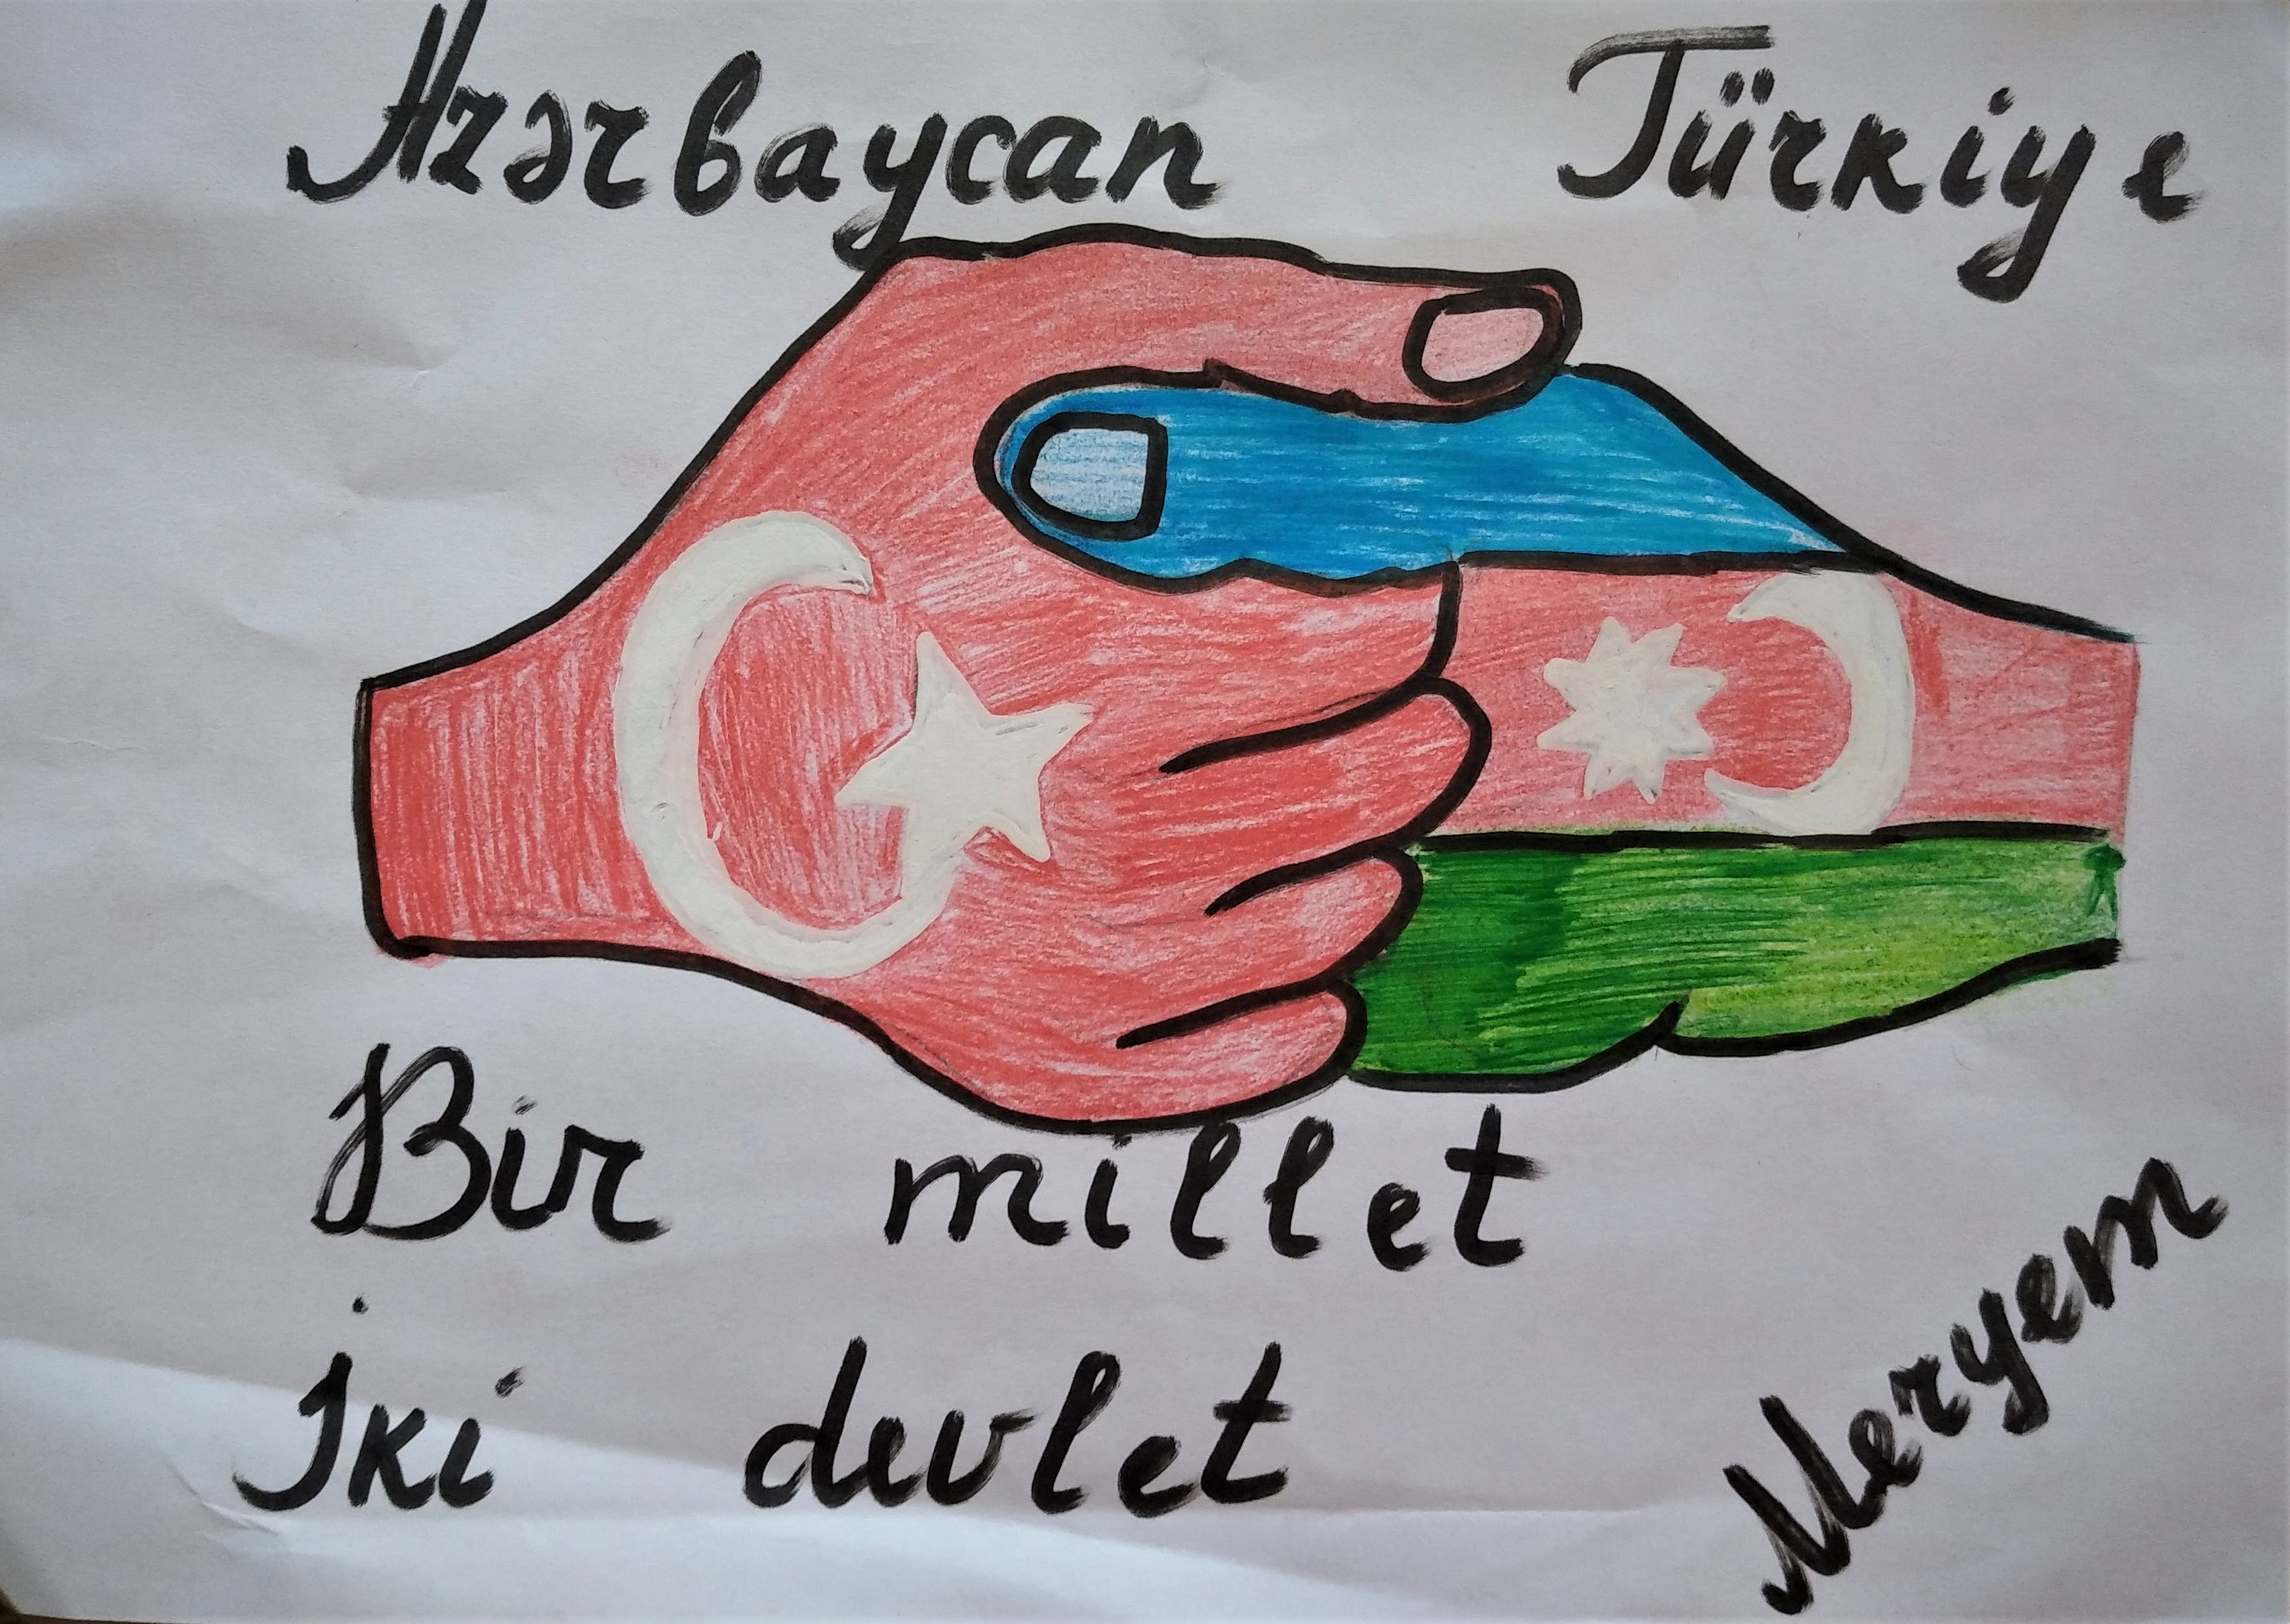 Azərbaycan Türkiye
Bir millet
İki devlet
Meryem